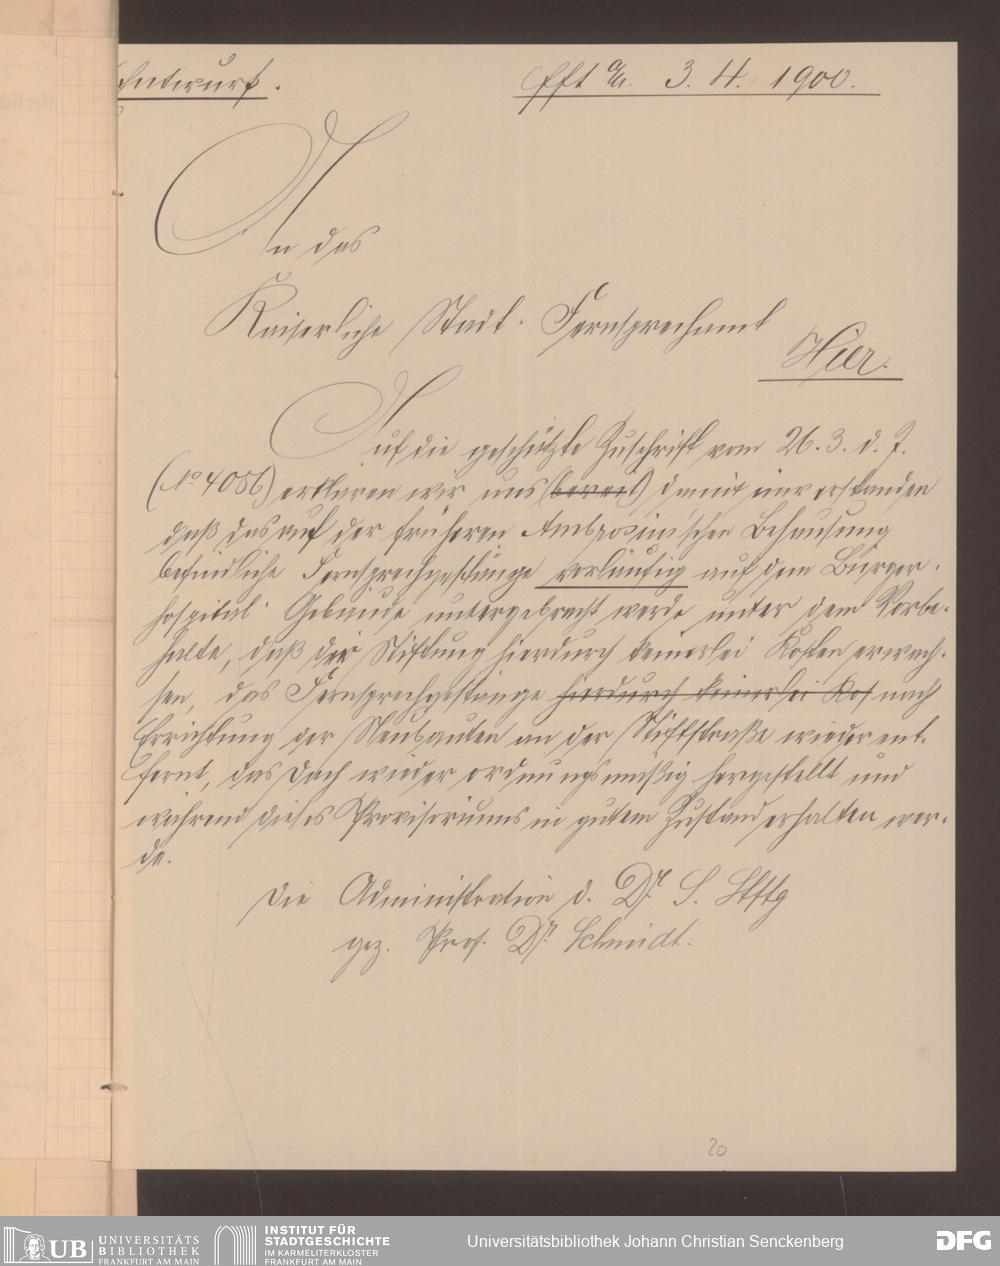 Entwurf.
Fft a/M. 3. 4. 1900.
An das
Kaiserliche Stadt-Fernsprechamt
Hier.
Auf die geschätzte Zuschrift vom 26. 3. d. J.
(No 4056) erklären wir uns (bereit) damit einverstanden
daß das auf der früheren Ambrosius'schen Behausung
befindliche Fernsprechgestänge vorläufig auf dem Bürger-
hospital-Gebäude untergebracht werde unter dem Vorbe-
halte, daß der Stiftung hierdurch keinerlei Kosten erwach-
sen, das Fernsprechgestänge hierdurch keinerlei Kos nach
Errichtung der Neubauten an der Stiftstraße wieder ent-
fernt, das Dach wieder ordnungsmäßig hergestellt und
während dieses Provisoriums in gutem Zustand erhalten wer-
de.
Die Administration d. Dr. S. Stftg
gez. Prof. Dr. Schmidt.
20
UB UNIVERSITÄTS
BIBLIOTHEK
FRANKFURT AM MAIN
INSTITUT FÜR
STADTGESCHICHTE
IM KARMELITERKLOSTER
FRANKFURT AM MAIN
Universitätsbibliothek Johann Christian Senckenberg
DFG